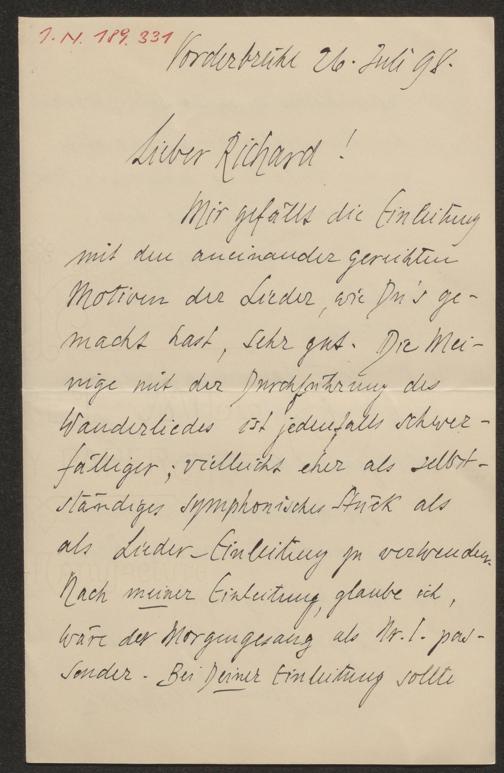 I. N. 189.331
Vorderbrühl 26. Juli 98.
Lieber Richard!
Mir gefällt die Einleitung
mit den aneinander gereihten
Motiven der Lieder, wie Du's ge-
macht hast, sehr gut. Die Mei-
nige mit der Durchführung des
Wanderliedes ist jedenfalls schwer-
fälliger; vielleicht eher als selbst-
ständiges symphonisches Stück als
als Lieder-Einleitung zu verwenden.
Nach meiner Einleitung, glaube ich,
wäre der Morgengesang als Nr. 1. pas-
sender. Bei Deiner Einleitung sollte